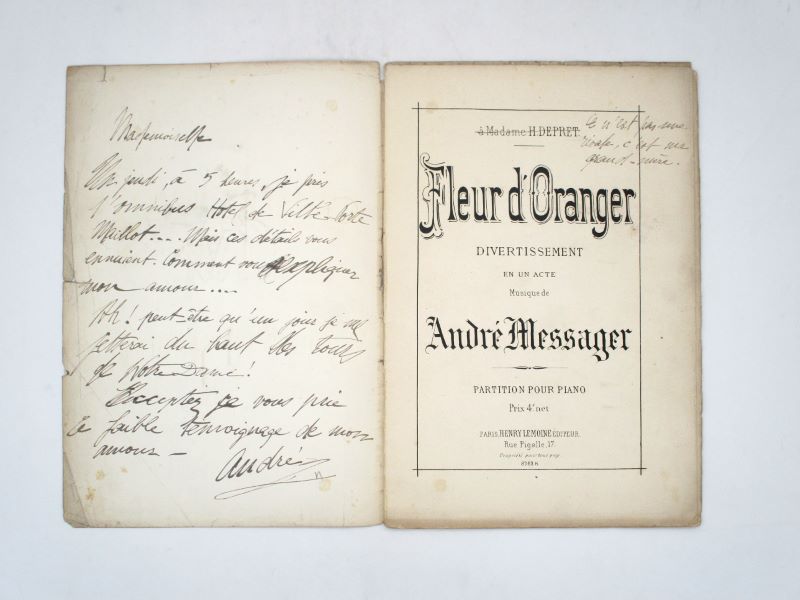 Mademoiselle
Un jeudi, à 5 heures, je pris
l'omnibus Hotel de Ville-Porte
Maillot.... Mais ces détails vous
ennuient. Comment vous expliquer
mon amour....
Ah! peut-être qu'un jour je me
jetterai du haut des tours
de Notre Dame!
Acceptez je vous prie
ce faible témoignage de mon
amour -
André
à Madame H. DEPRET.
Ce n'est pas une
rivale, c'est ma
grand-mère.
Fleur d'Oranger
DIVERTISSEMENT
EN UN ACTE
Musique de
André Messager
PARTITION POUR PIANO
Prix 4f net
PARIS, HENRY LEMOINE ÉDITEUR.
Rue Pigalle, 17.
Propriété pour tous pays.